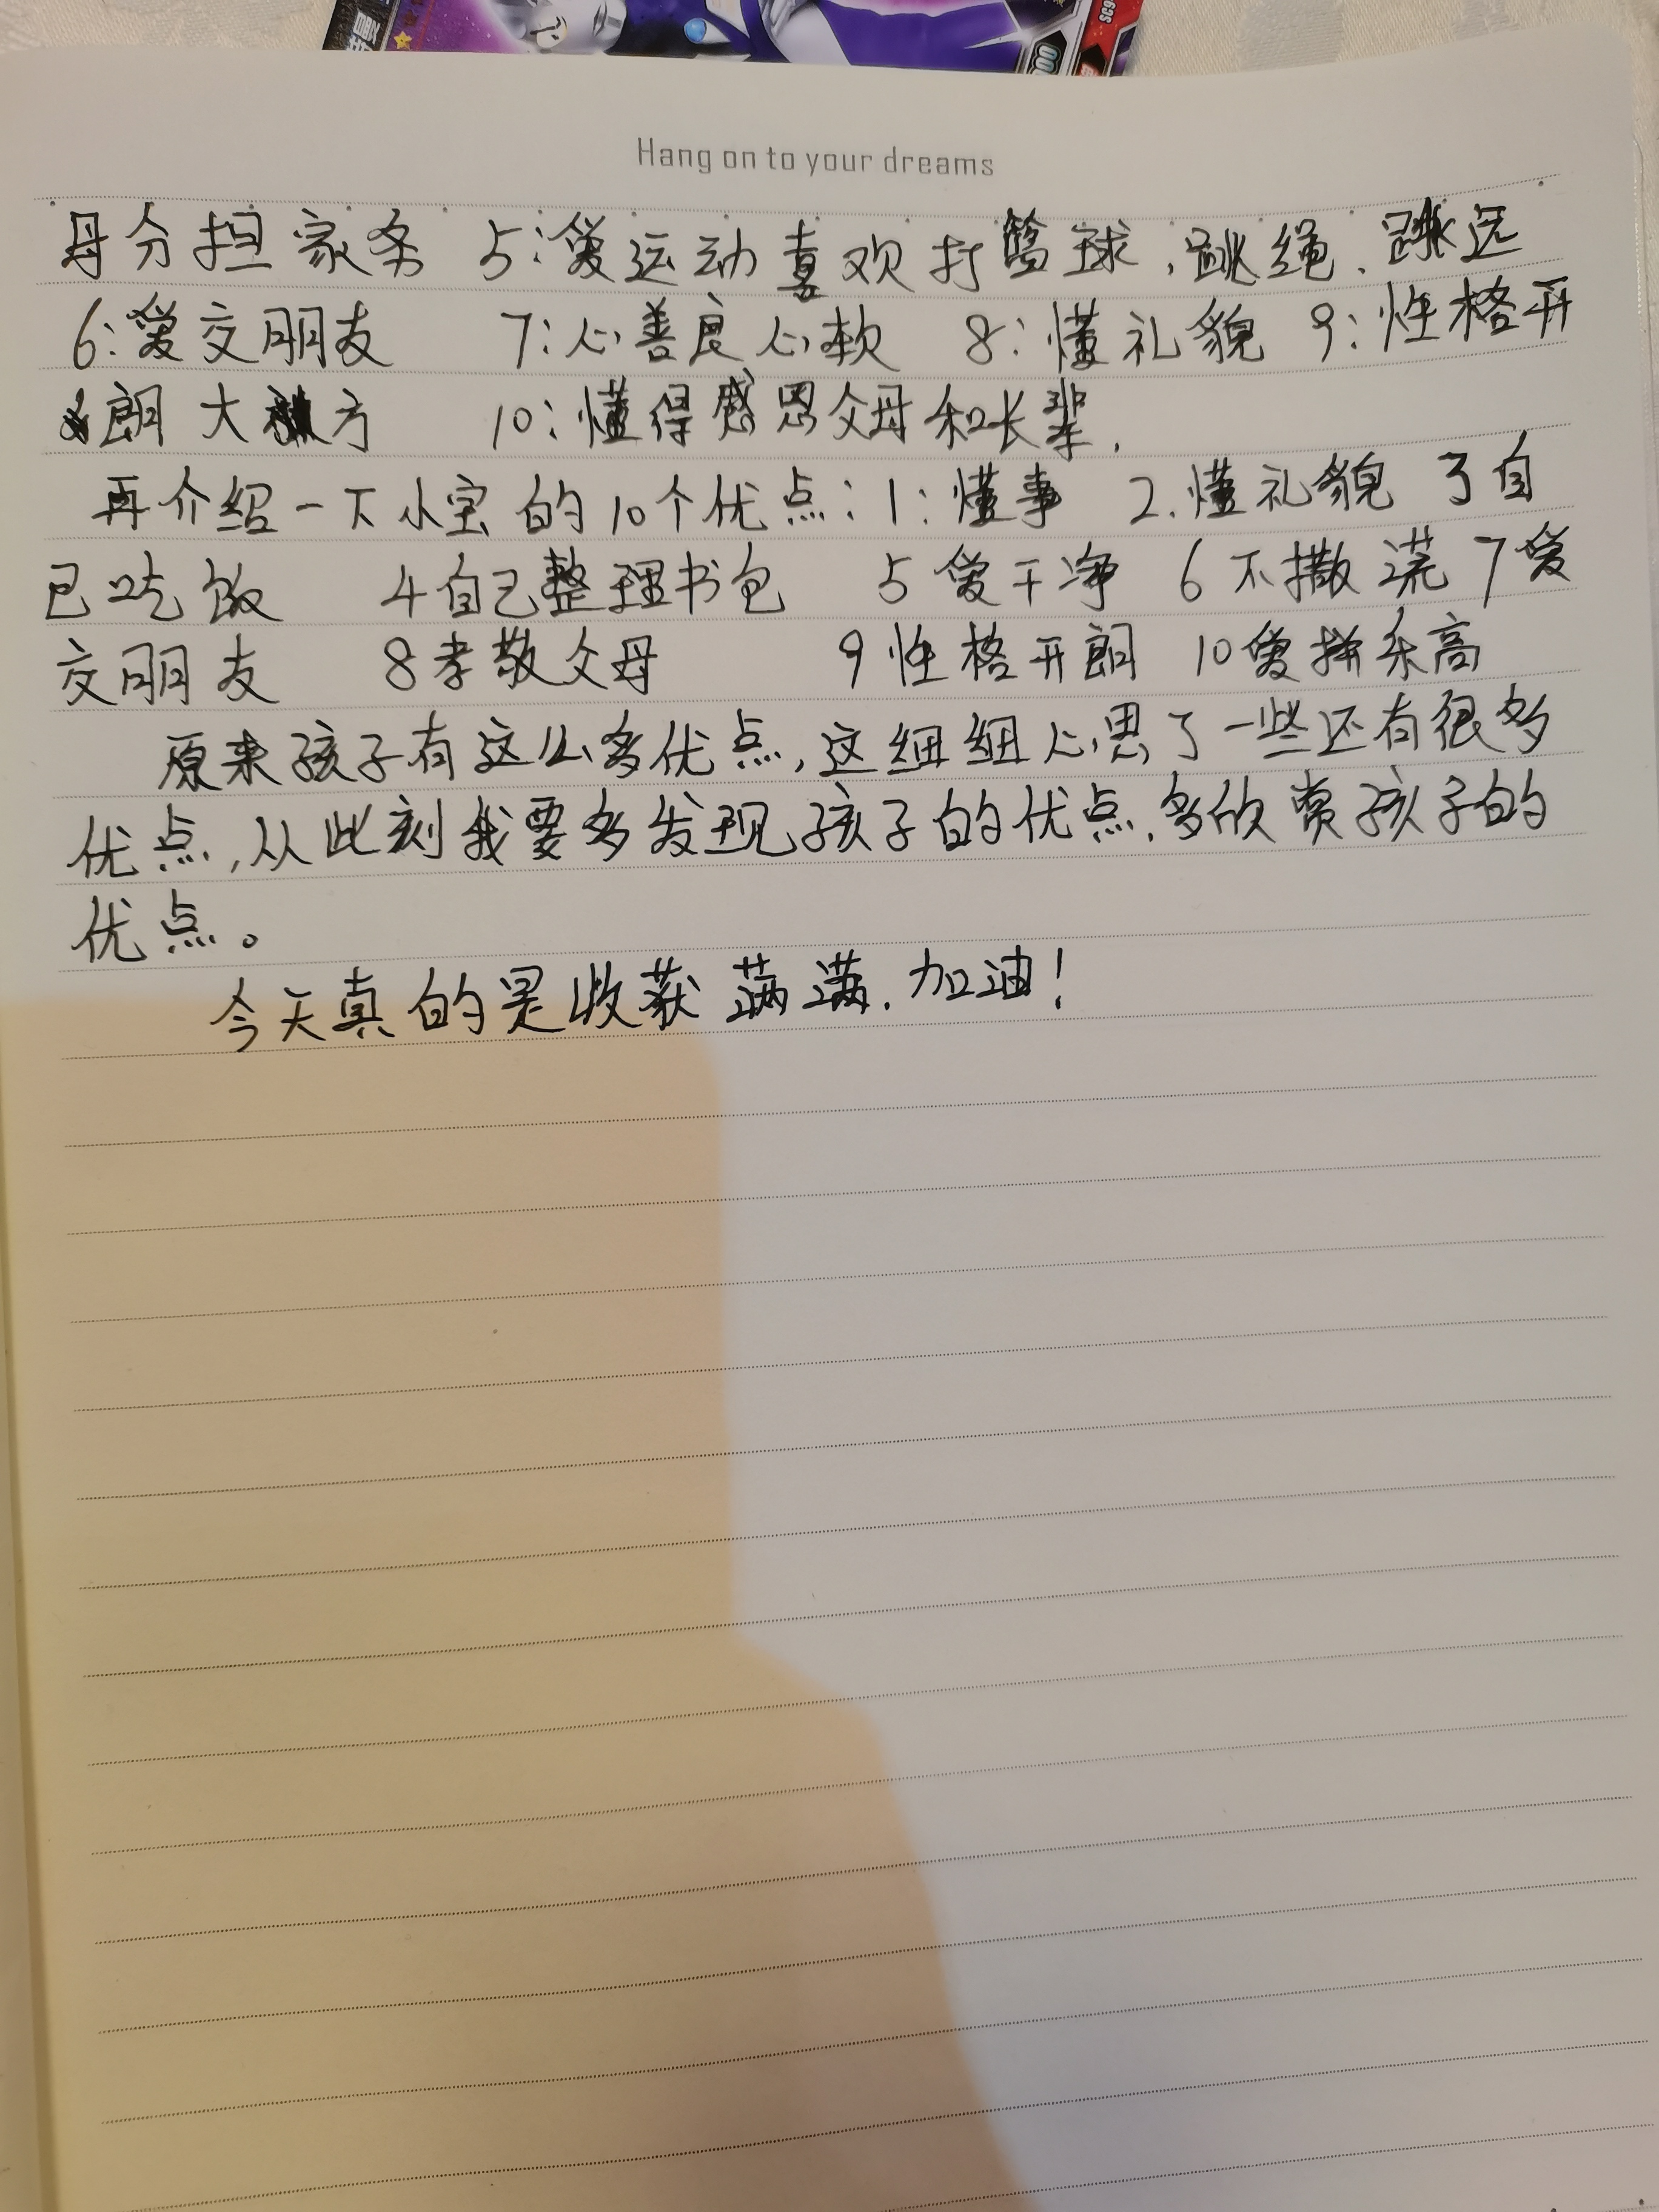 Hang on to your dreams
母分担家务 5:爱运动喜欢打篮球,跳绳、跳远
6:爱交朋友 7:心善良心软 8:懂礼貌 9:性格开
朗大方 10:懂得感恩父母和长辈.
再介绍一下小宝的10个优点:1:懂事 2.懂礼貌 3自
己吃饭 4自己整理书包 5爱干净 6不撒谎 7爱
交朋友 8孝敬父母 9性格开朗 10爱拼乐高
原来孩子有这么多优点,这细细心思了一些还有很多
优点,从此刻我要多发现孩子的优点,多欣赏孩子的
优点。
今天真的是收获满满.加油!